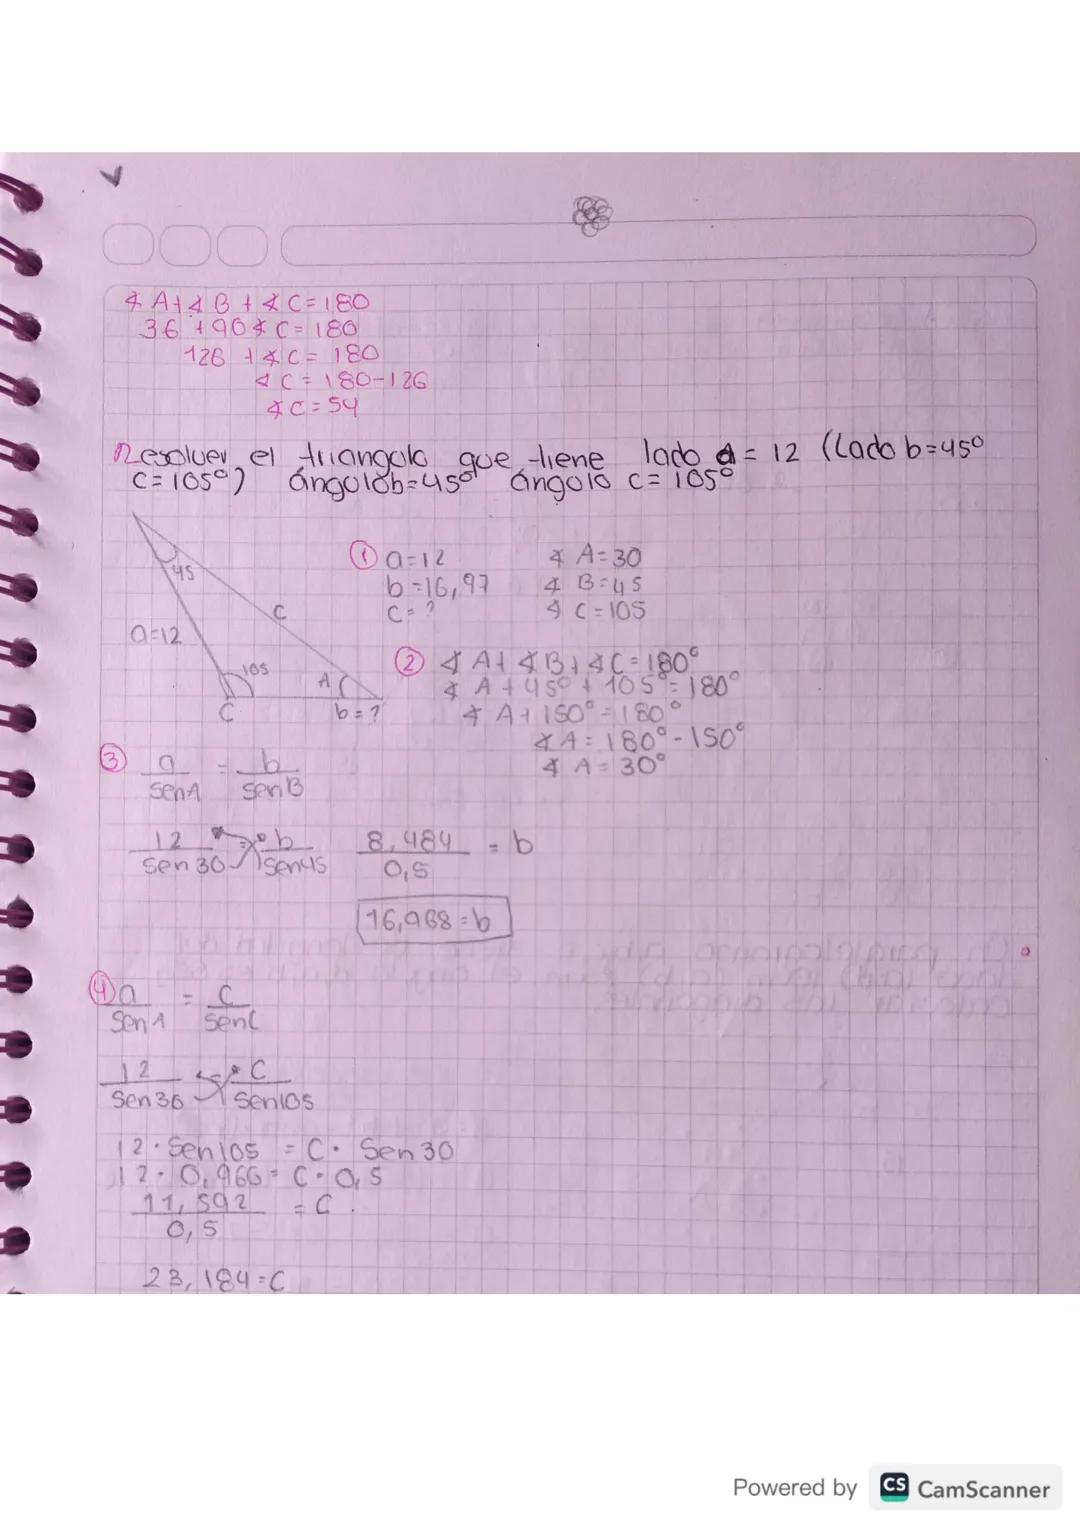 ∡ A+∡ B + ∡ C=180
36 +90∡ C= 180
126 +∡ C= 180
∡ C= 180-126
∡ C= 54
Resolver el triangulo que tiene lado a = 12 (Lado b=45°
C=105°) ángulob=45° ángulo c= 105°
① a=12 ∡ A=30
b=16,97 ∡ B=45
c= ? ∡ C=105
45
c
a=12
105
A
C
b=?
② ∡ A+ ∡B+ ∡C=180°
∡ A + 45° + 105°=180°
∡ A+ 150°=180°
∡ A= 180°-150°
∡ A= 30°
③ a = b
SenA SenB
12 = b
Sen 30 Sen45
8,484 = b
0,5
16,968=b
④ a = c
Sen A SenC
12 = C
Sen 30 Sen105
12· Sen105 = C· Sen30
12· 0,966= C·0,5
11,592 = C
0,5
23,184=C
Powered by CS CamScanner